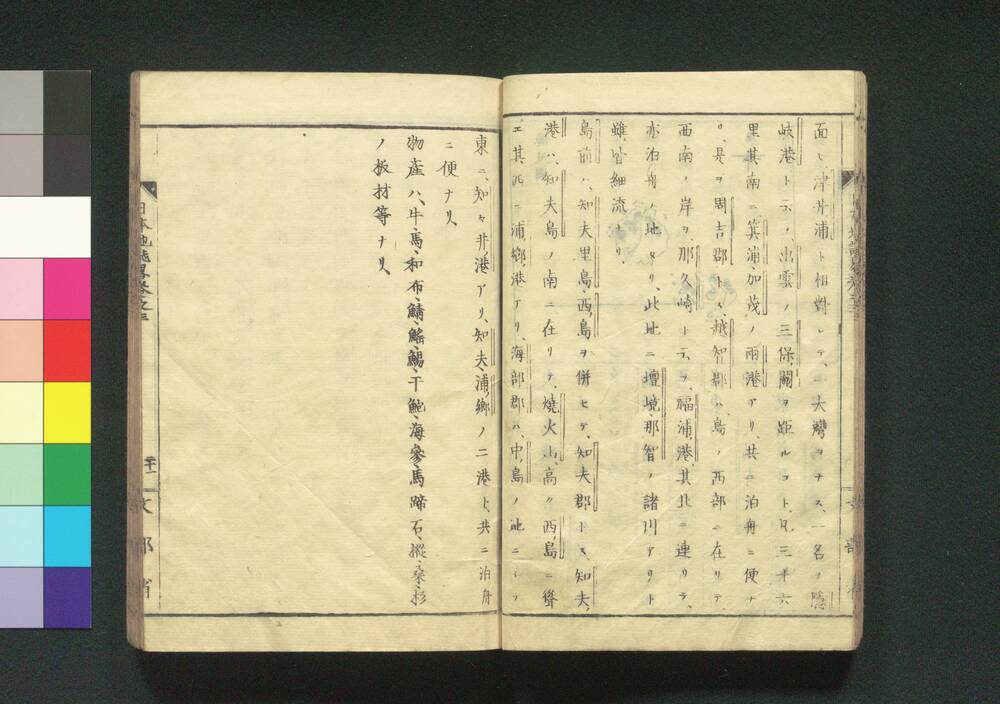 面シ、津井浦ト相對シテ、一大灣ヲナス、一名ヲ隱
岐港ト云フ、出雲ノ三保關ヲ距ルコト、凡三十六
里其南ニ箕浦、加茂ノ兩港アリ、共ニ泊舟ニ便ナ
リ、是ヲ周吉郡トス、越智郡ハ、島ノ西部ニ在リテ、
西南ノ岸ヲ那久崎ト云フ、福浦港、其北ニ連リテ、
亦泊舟ノ地タリ、此地ニ壇境、那智ノ諸川アリト
雖、皆細流ナリ、
島前ハ、知夫里島、西島ヲ併セテ、知夫郡トス、知夫
港ハ、知夫島ノ南ニ在リテ、燒火山、高ク西島ニ聳
エ、其西ニ浦鄉港アリ、海部郡ハ、中島ノ地ニシテ
東ニ、知々井港アリ、知夫、浦鄉ノ二港ト、共ニ泊舟
ニ便ナリ、
物產ハ、牛、馬、和布、鯖、鰩、鯣、干鮑、海參、馬蹄石、樅、桑、杉
ノ板材等ナリ、
日本地誌略卷之三
二十一
文部省